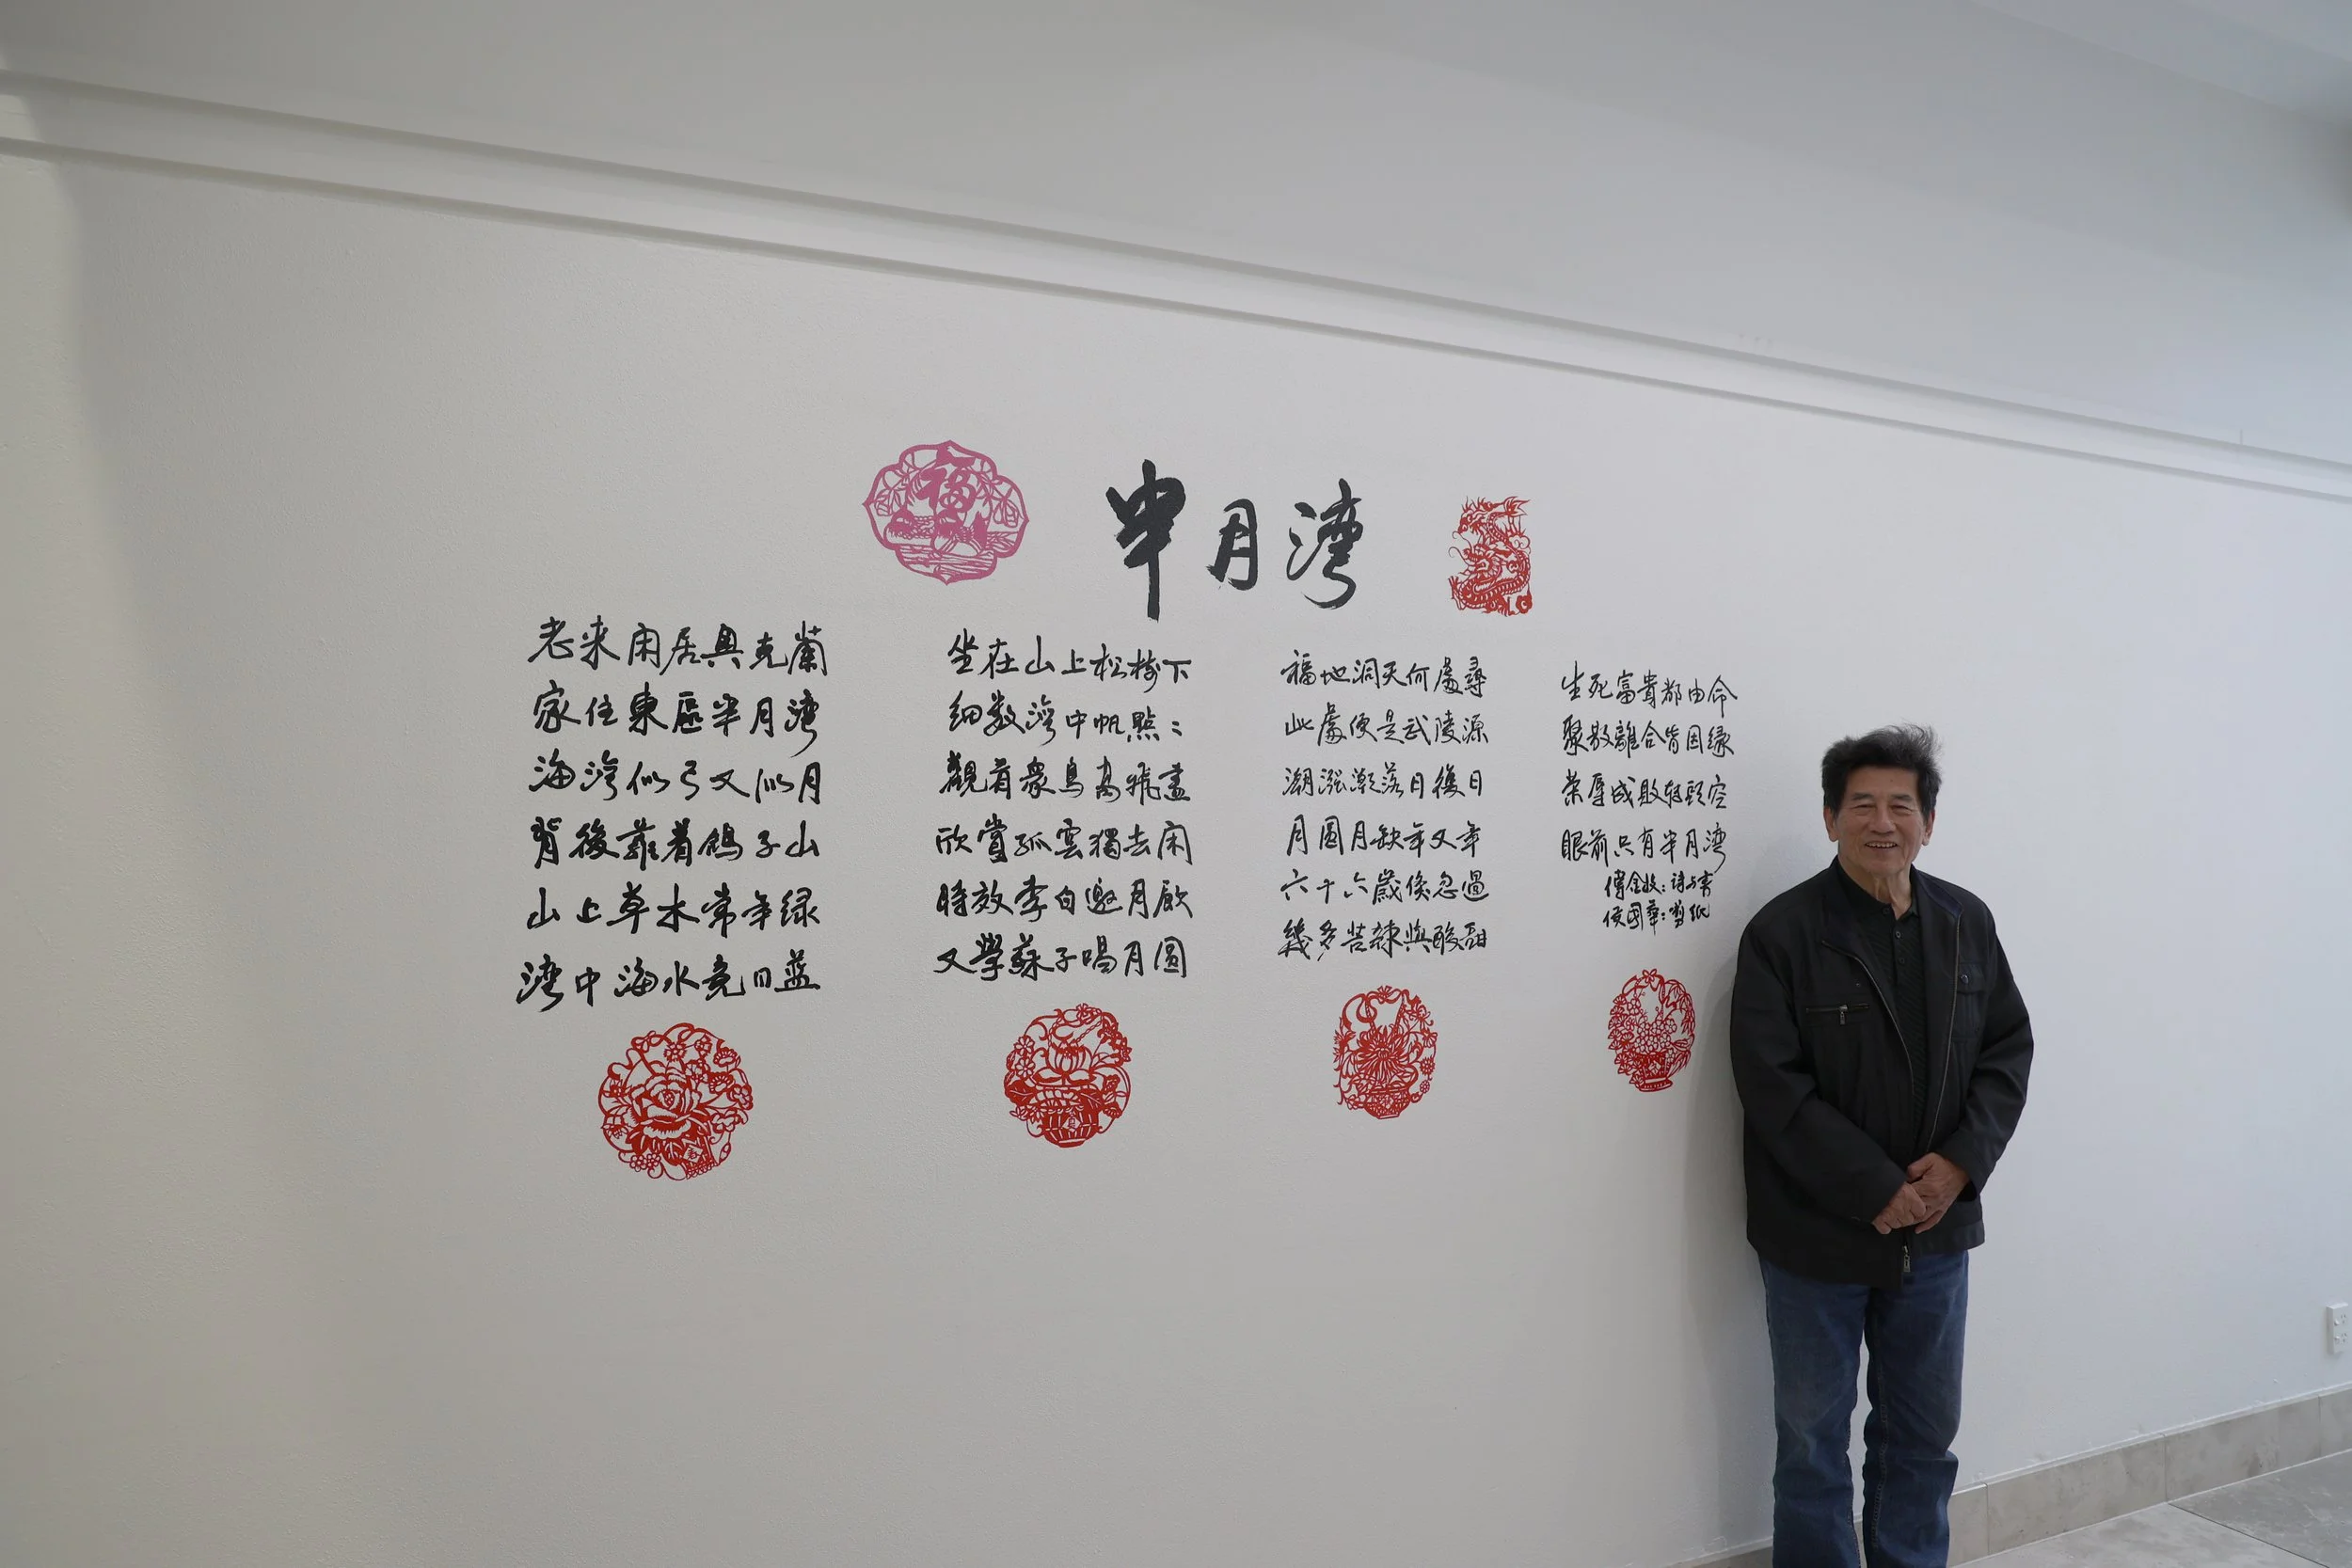 福
半月湾
老来闲居奥克蘭
家住東區半月湾
海湾似弓又似月
背後靠着鴿子山
山上草木常年绿
湾中海水竟日蓝
坐在山上松樹下
细数湾中帆點々
觀看衆鳥高飛盡
欣賞孤雲獨去闲
時效李白邀月飲
又學蘇子唱月圆
福地洞天何處尋
此處便是武陵源
潮漲潮落日復日
月圆月缺年又年
六十六歲倏忽過
幾多苦辣與酸甜
生死富貴都由命
聚散離合皆因缘
荣辱成敗轉頭空
眼前只有半月湾
傅金枝：诗与書
侯國華：剪纸
春